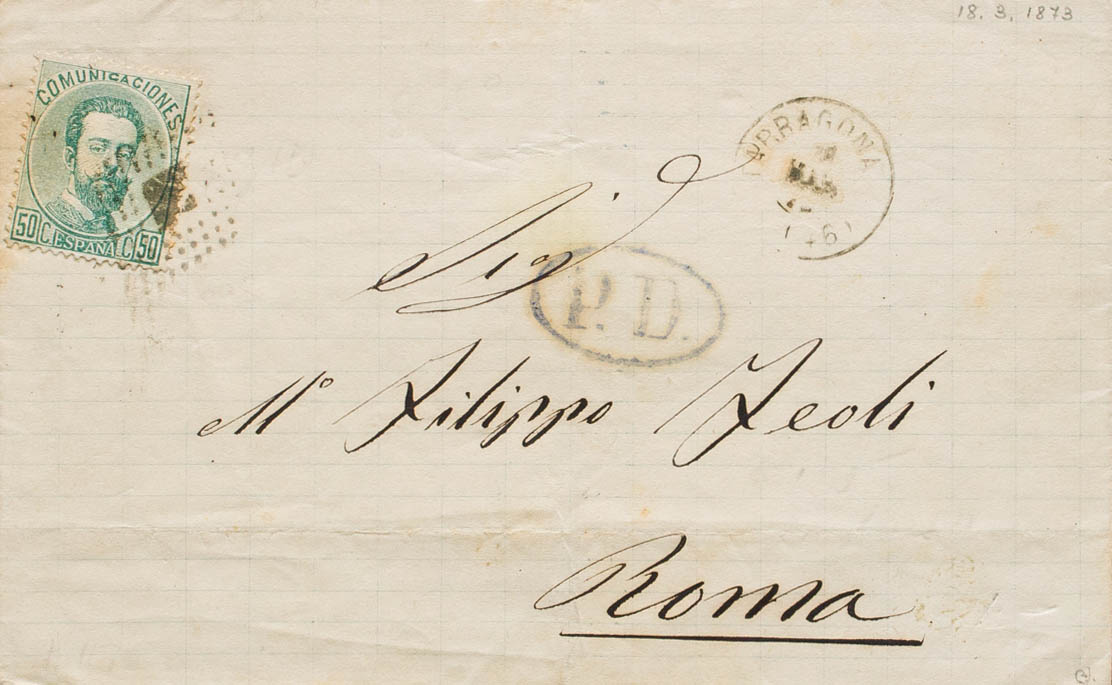 18. 3. 1873
COMUNICACIONES
50 C. ESPAÑA C. 50
TARRAGONA
MAR
Sigr
P. D.
Mo Filippo Feoli
Roma